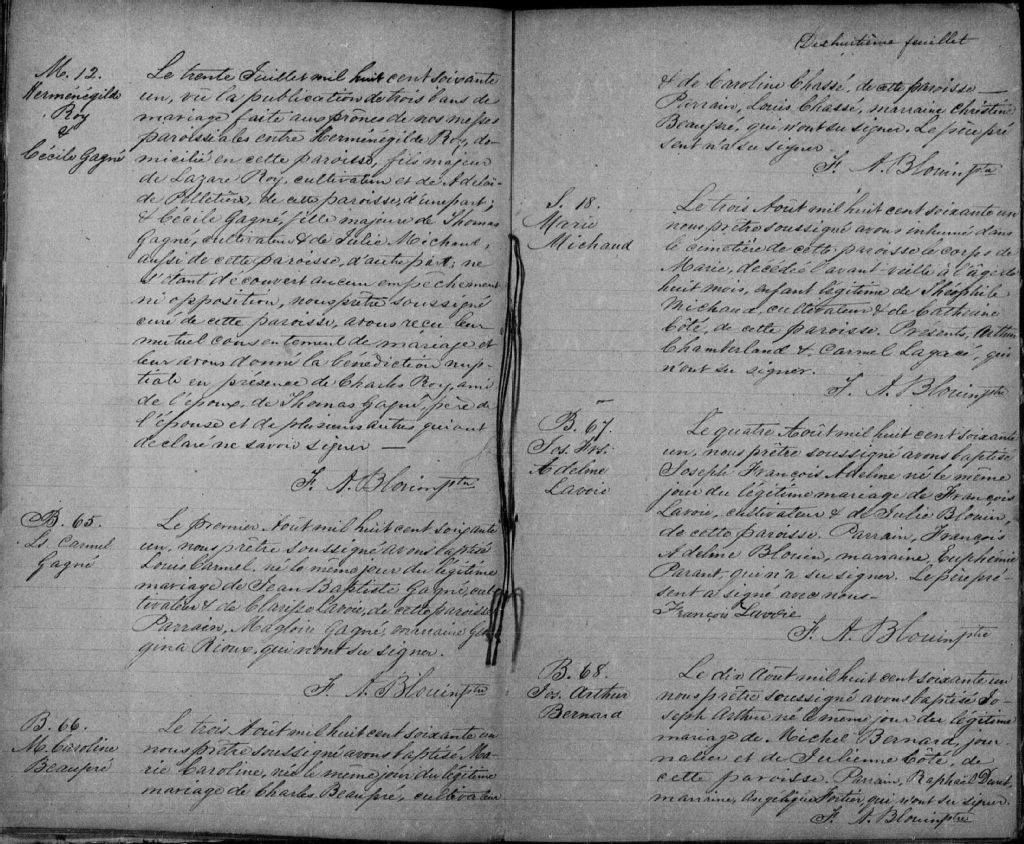 M. 12.
Herménégilde
Roy
&
Cécile Gagné
Le trente Juillet mil huit cent soixante
un, vû la publication de trois bans de
mariage faite aux prônes de nos messes
paroissiales entre Herménégilde Roy, do-
micilié en cette paroisse, fils majeur
de Lazare Roy, cultivateur et de Adelaï-
de Pelletier, de cette paroisse, d'une part;
& Cécile Gagné, fille majeure de Thomas
Gagné, cultivateur & de Julie Michaud,
aussi de cette paroisse, d'autre part; ne
s'étant découvert aucun empêchement
ni opposition, nous prêtre soussigné
curé de cette paroisse, avons reçu leur
mutuel consentement de mariage et
leur avons donné la bénédiction nup-
tiale en présence de Charles Roy, ami
de l'époux, de Thomas Gagné, père de
l'épouse et de plusieurs autres qui ont
déclaré ne savoir signer —
F. A. Blouin ptre
B. 65.
Ls. Carmel
Gagné
Le premier Aout mil huit cent soixante
un, nous prêtre soussigné avons baptisé
Louis Carmel, né le même jour du légitime
mariage de Jean Baptiste Gagné, cul-
tivateur & de Clarisse Lavoie, de cette paroisse
Parrain, Magloire Gagné, marraine Geor-
gina Rioux, qui n'ont su signer.
F. A. Blouin ptre
B. 66.
M. Caroline
Beaupré
Le trois Août mil huit cent soixante un
nous prêtre soussigné avons baptisé Ma-
rie Caroline, née le même jour du légitime
mariage de Charles Beaupré, cultivateur
Dixhuitième feuillet
& de Caroline Chassé, de cette paroisse —
Parrain, Louis Chassé, marraine Christine
Beaupré, qui n'ont su signer. Le père pré-
sent n'a su signer —
F. A. Blouin ptre
S. 18.
Marie
Michaud
Le trois Août mil huit cent soixante un
nous prêtre soussigné avons inhumé dans
le cimetière de cette paroisse le corps de
Marie, décédée l'avant veille à l'âge de
huit mois, enfant légitime de Théophile
Michaud, cultivateur & de Catherine
Côté, de cette paroisse. Présents, Arthur
Chamberland & Carmel Lagacé, qui
n'ont su signer.
F. A. Blouin ptre
B. 67.
Jos. Frs.
Adelme
Lavoie
Le quatre Août mil huit cent soixante
un, nous prêtre soussigné avons baptisé
Joseph François Adelme né le même
jour du légitime mariage de François
Lavoie, cultivateur & de Julie Blouin,
de cette paroisse. Parrain, François
Adelme Blouin, marraine, Euphémie
Parant, qui n'a su signer. Le père pré-
sent a signé avec nous —
François Lavoie
F. A. Blouin ptre
B. 68.
Jos. Arthur
Bernard
Le dix Août mil huit cent soixante un
nous prêtre soussigné avons baptisé Jo-
seph Arthur né le même jour du légitime
mariage de Michel Bernard, jour-
nalier et de Julienne Côté, de
cette paroisse. Parrain, Raphaël
marraine, Angélique Fortier, qui n'ont su signer.
F. A. Blouin ptre